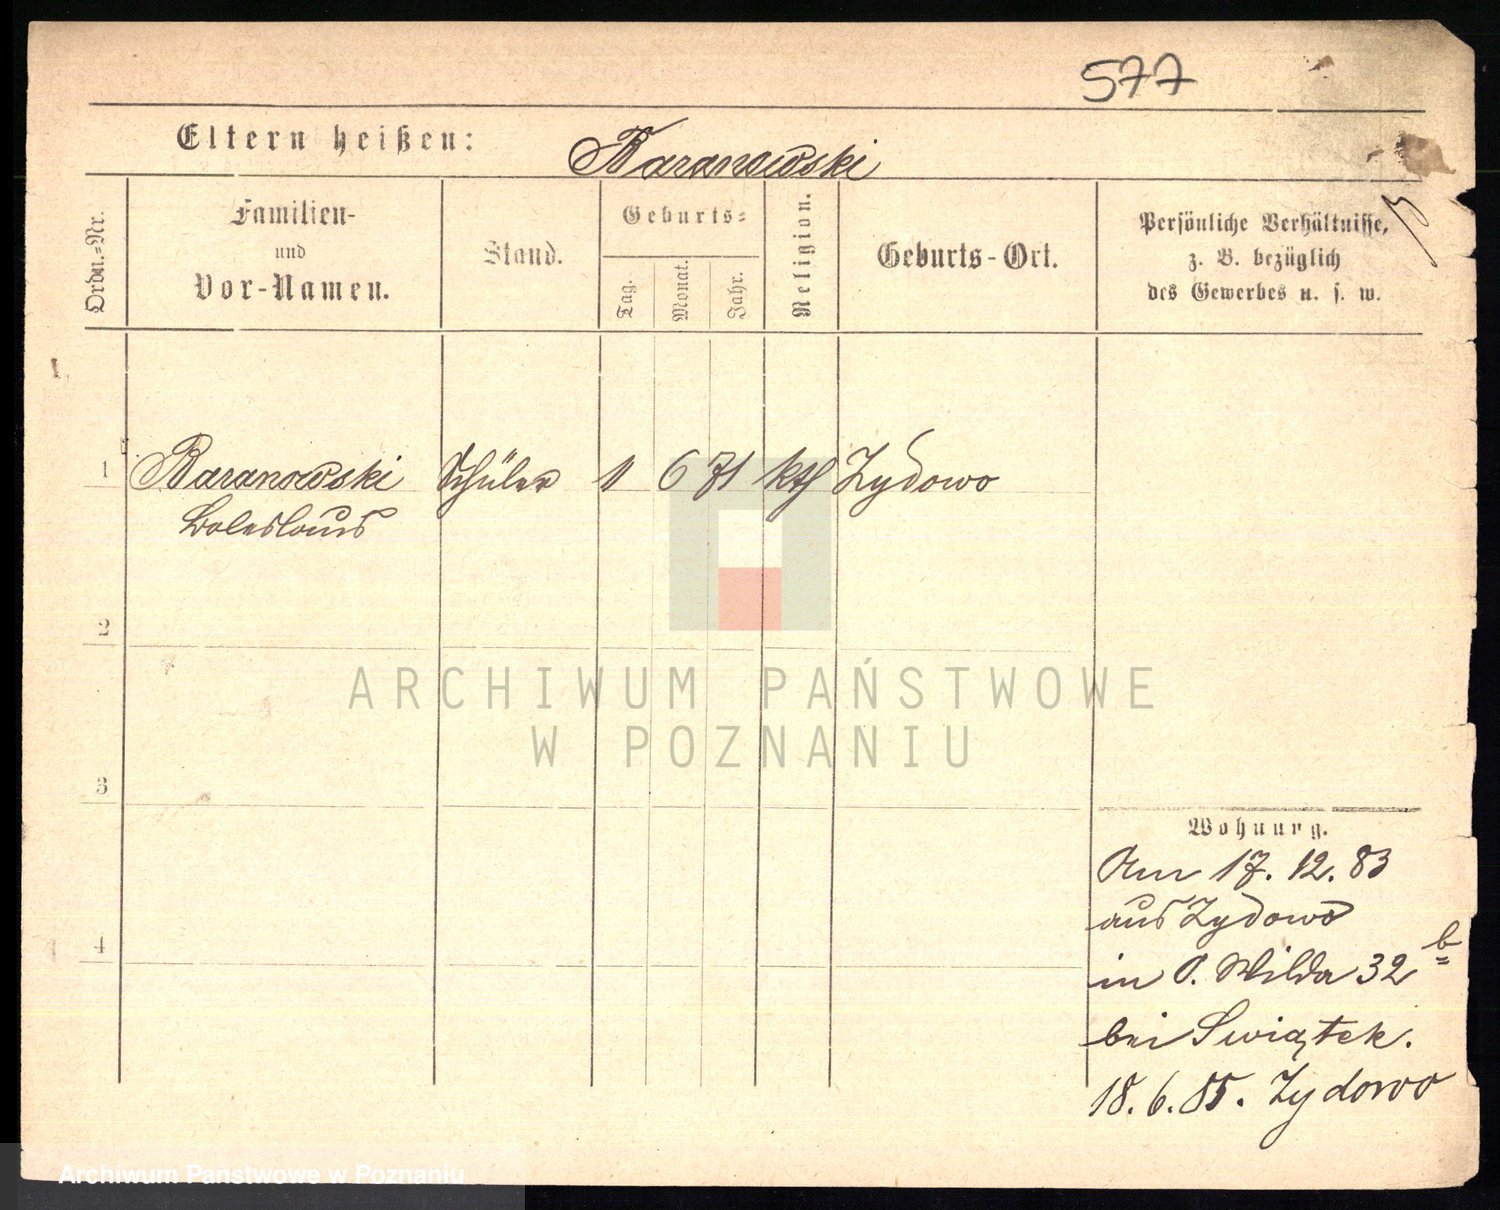 577
Eltern heißen: Baranowski
Ordn.-Nr.
Familien-
und
Vor-Namen.
Stand.
Geburts-
Tag.
Monat.
Jahr.
Religion.
Geburts-Ort.
Persönliche Verhältnisse,
z. B. bezüglich
des Gewerbes u. s. w.
1 Baranowski Schüler 11 6 71 kth Zydowo
Boleslaus
2
ARCHIWUM PAŃSTWOWE
W POZNANIU
3
Wohnung.
Am 17. 12. 83
aus Zydowo
4
in O. Wilda 32 b
bei Swiątek.
18. 6. 85. Zydowo
Archiwum Państwowe w Poznaniu